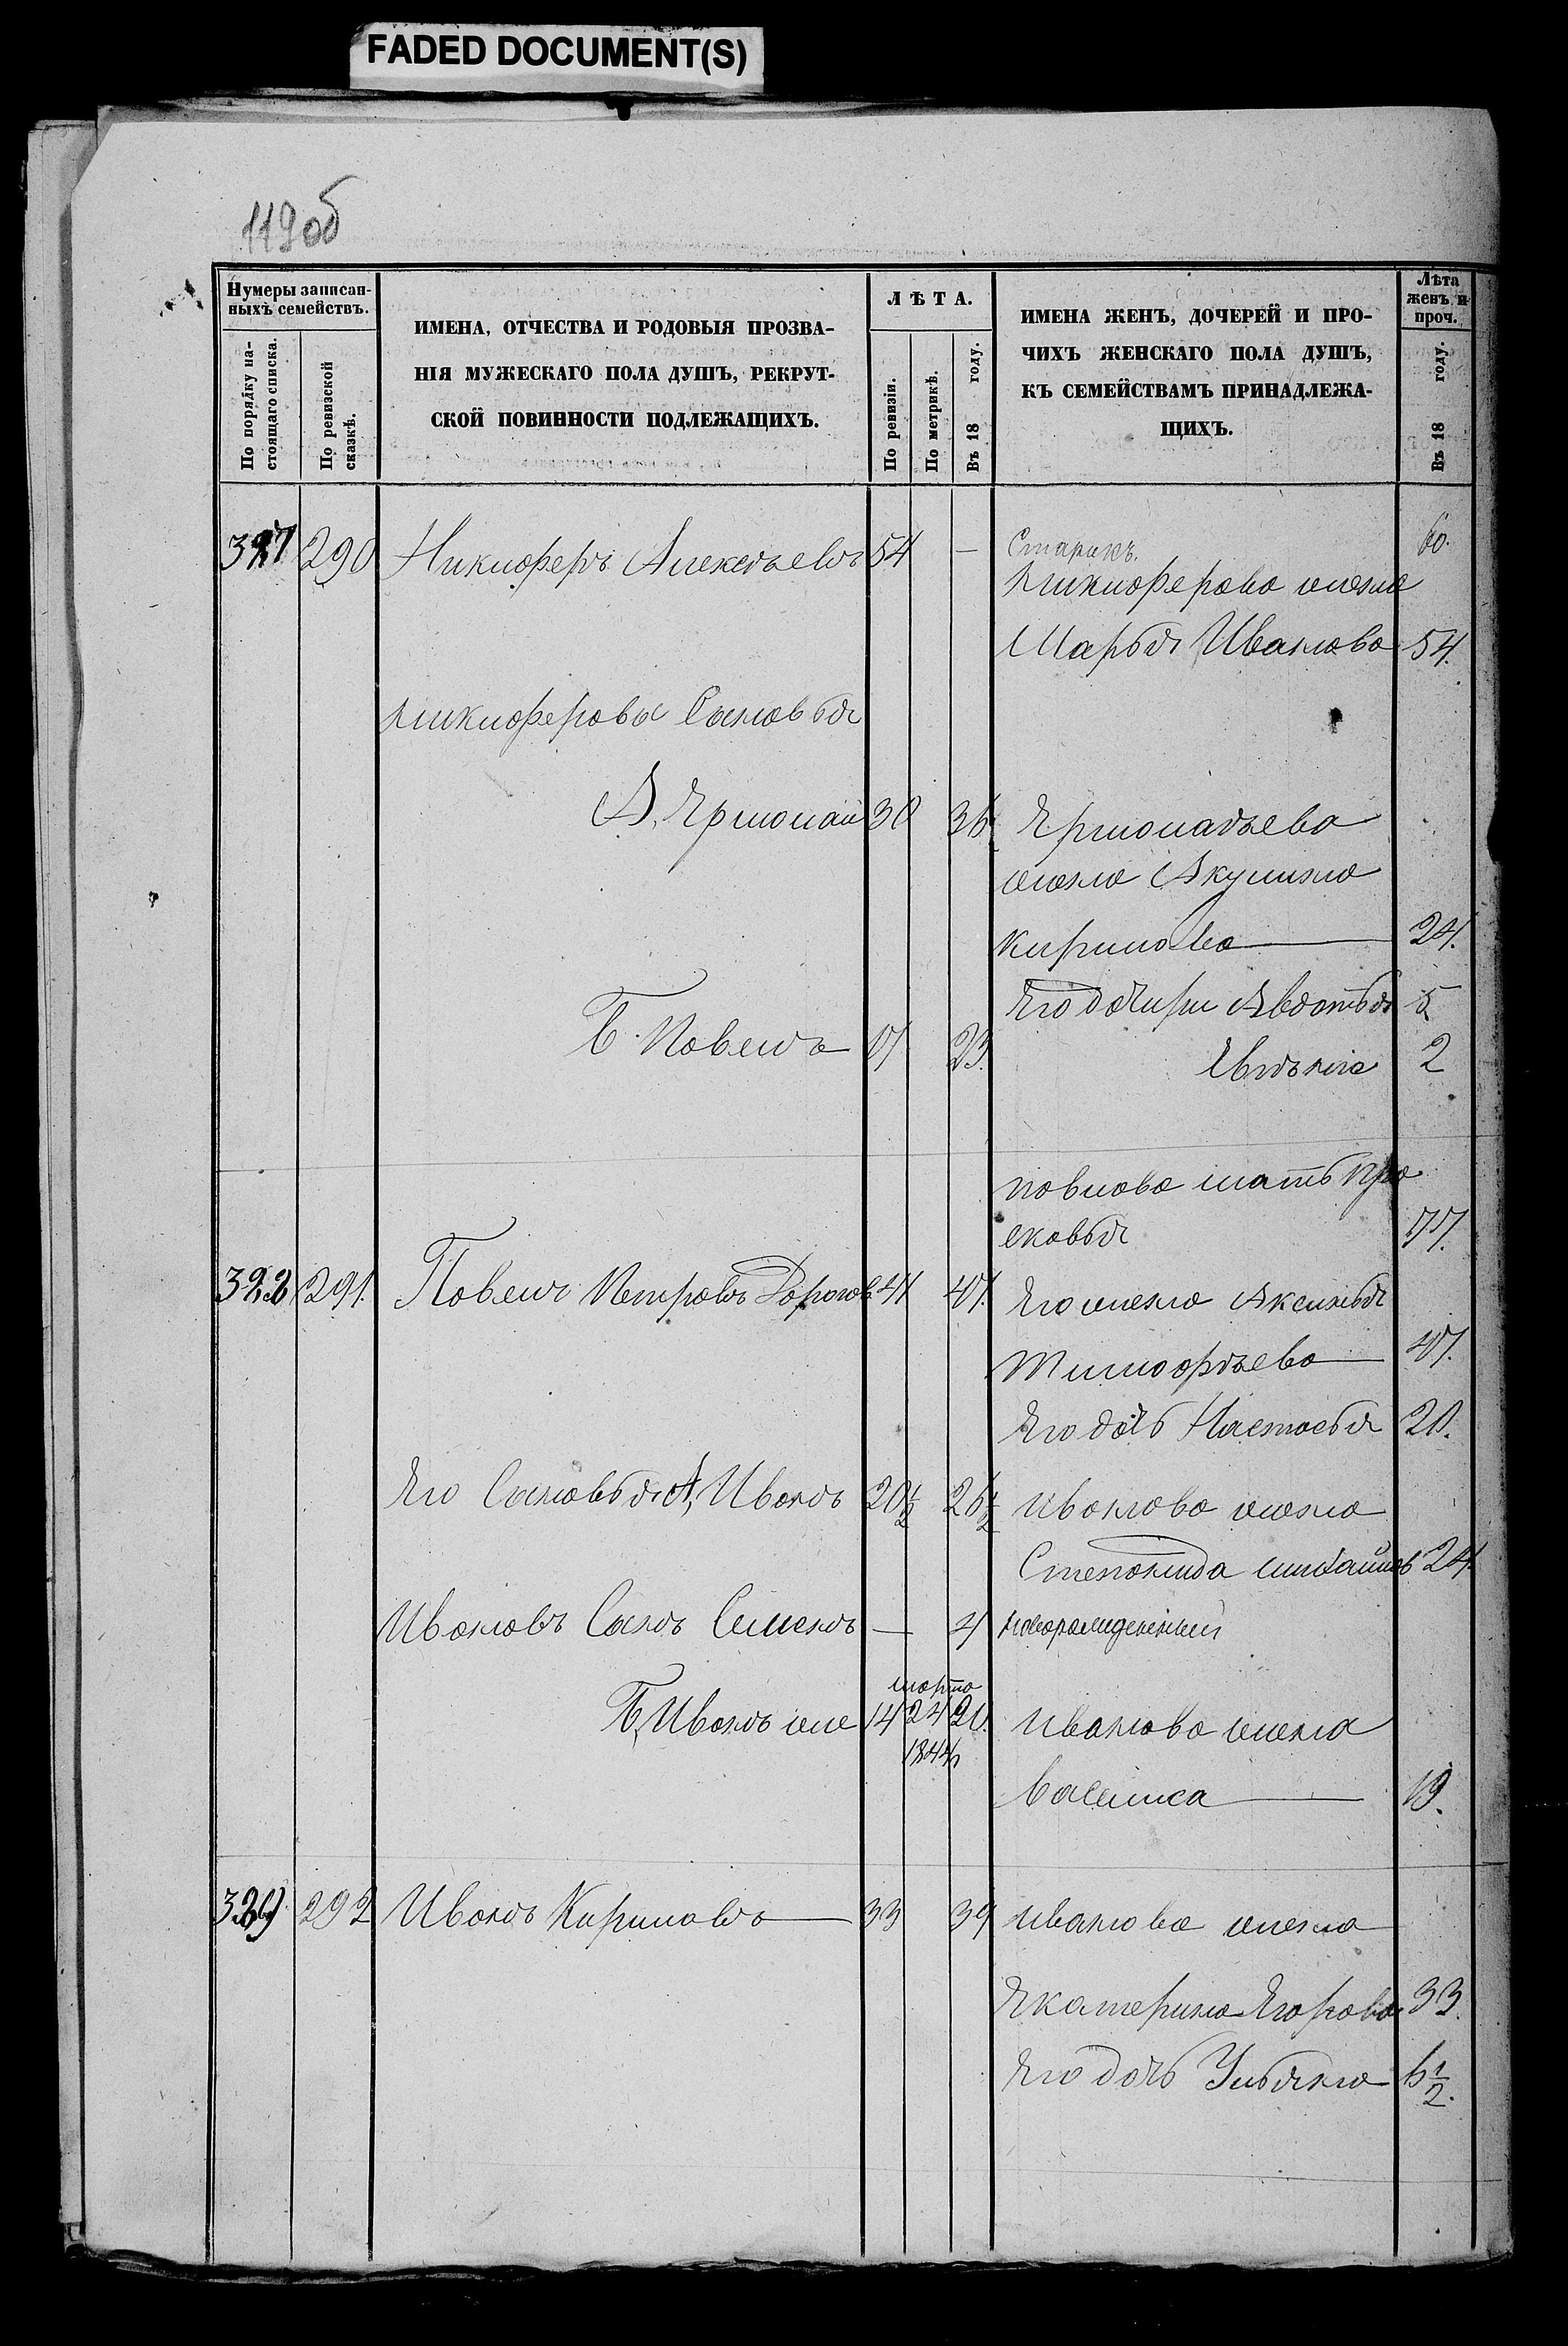 FADED DOCUMENT(S)
119об
Нумеры записан-
ныхъ семействъ.
По порядку на-
стоящаго списка.
По ревизской
сказкѣ.
ИМЕНА, ОТЧЕСТВА И РОДОВЫЯ ПРОЗВА-
НІЯ МУЖЕСКАГО ПОЛА ДУШЪ, РЕКРУТ-
СКОЙ ПОВИННОСТИ ПОДЛЕЖАЩИХЪ.
ЛѢТА.
По ревизіи.
По метрикѣ.
Въ 18 году.
ИМЕНА ЖЕНЪ, ДОЧЕРЕЙ И ПРО-
ЧИХЪ ЖЕНСКАГО ПОЛА ДУШЪ,
КЪ СЕМЕЙСТВАМЪ ПРИНАДЛЕЖА-
ЩИХЪ.
Лѣта
женъ и
проч.
Въ 18 году.
327 290 Никиферъ Алексѣевъ 54 — Старикъ. 60.
никиферова жена
Марья Иванова 54.
никиферовы Сыновья
А, Ермолай 30 36 Ермолаѣва
жена Акулина
кирилова 24.
Его дочири Авдотья 5
Б. Павелъ 17 23. Евгѣнія 2
павлова мать Пра
сковья 77.
328 291. Павелъ Петровъ Дорогов 41 47. Его жена Аксинья
Тимофѣева 47.
Его дочь Настасья 20.
Его Сыновья А, Иванъ 20½ 26½ иванова жена
Степанида 24.
Ивановъ Сынъ Семенъ — 4 новорожденный
марта
Б, Иванъ же 14 24 20. иванова жена
1844
Василиса 19.
329 292 Иванъ Кириловъ 33 39 иванова жена
Екатерина Егорова 33.
Его дочь Ульяна 6½.